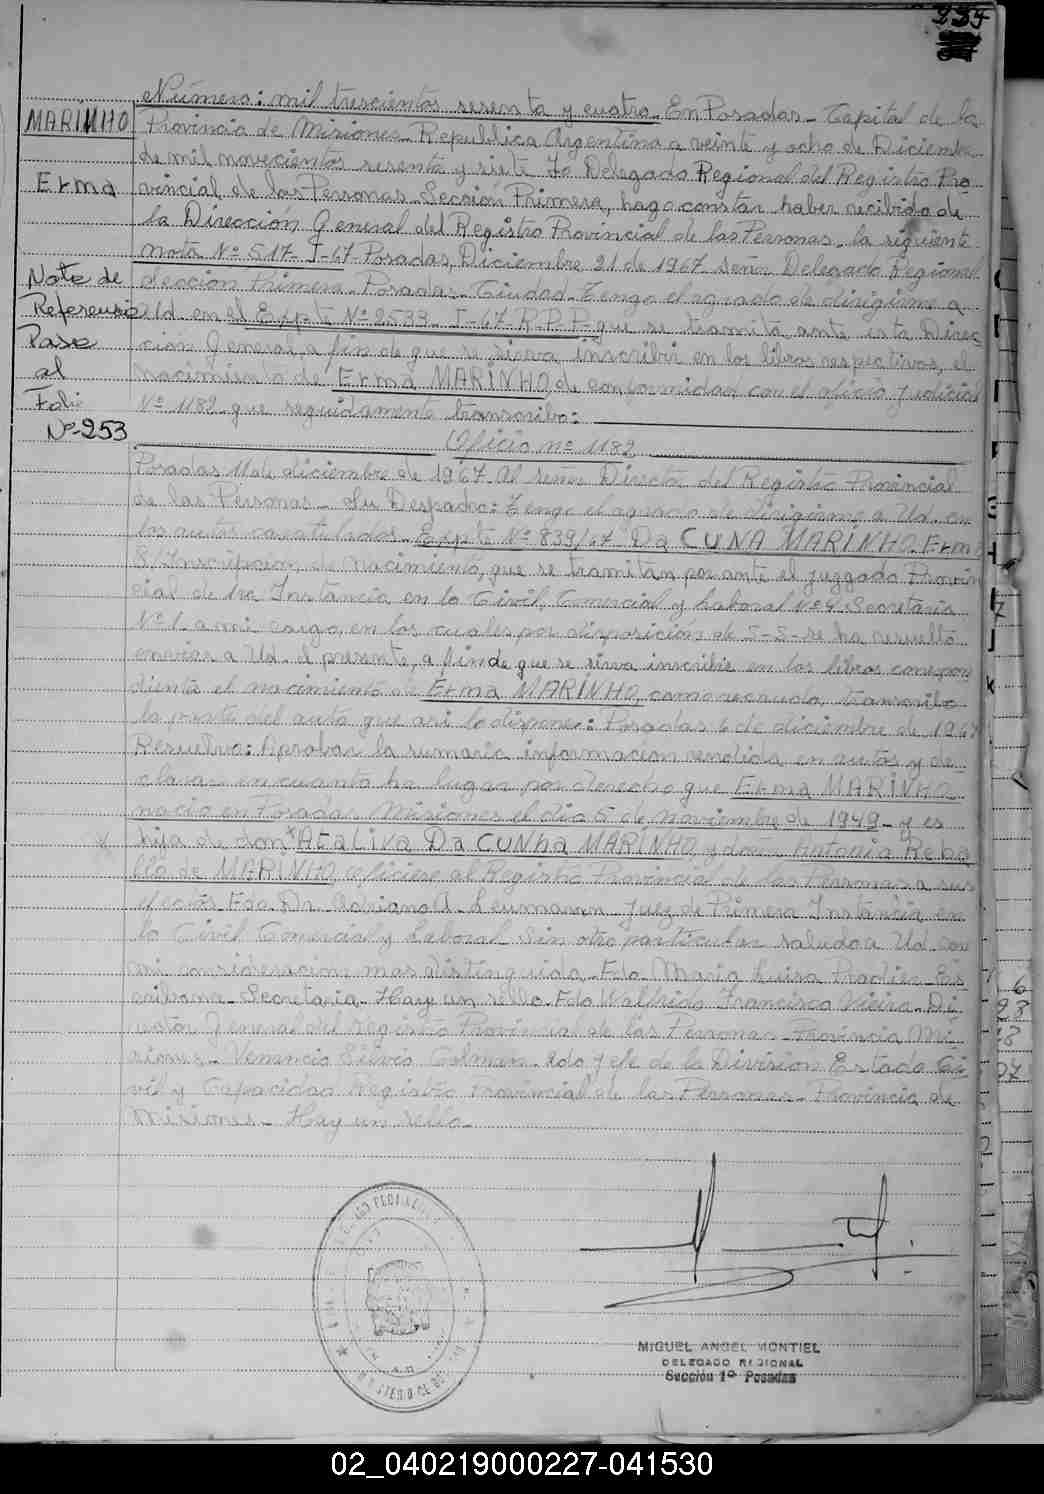 237
Número: mil trescientos sesenta y cuatro. En Posadas_ Capital de la
MARINHO
Provincia de Misiones_ Republica Argentina a veinte y ocho de Diciembre
de mil novecientos sesenta y siete Yo Delegado Regional del Registro Pro
Erma
vincial de las Personas_ Sección Primera, hago constar haber recibido de
la Dirección General del Registro Provincial de las Personas_ la siguiente
nota Nº 517_ I_67_ Posadas, Diciembre 21 de 1967 señor Delegado Regional
Note de
Sección Primera_ Posadas_ Ciudad_ Tengo el agrado de dirigirme a
Referencia
Ud. en el Expte Nº 2533_ I_67_R.P.P_ que se tramita ante esta Direc
Pase
ción General, a fin de que se sirva inscribir en los libros respectivos, el
al
nacimiento de Erma MARINHO, de conformidad con el oficio Judicial
Folio
Nº 1182_ que seguidamente transcribo:
Nº-253
Oficio nº 1182
Posadas 11 de diciembre de 1967 Al señor Director del Registro Provincial
de las Personas_ Su Despacho: Tengo el agrado de dirigirme a Ud. en
los autos caratulados_ Expte Nº 839/67 "Da CUNA MARINHO Erma
S/Inscripcion de nacimiento, que se tramitan por ante el juzgado Provin
cial de 1ra Instancia en lo Civil, Comercial y Laboral Nº 4 Secretaría
Nº 1_ a mi cargo, en los cuales por disposición de S_S_ se ha resuelto
enviar a Ud. el presente, a fin de que se sirva inscribir en los libros correspon
dientes el nacimiento de Erma MARINHO, como recaudo, transcribo
la parte del auto que así lo dispone: Posadas 6 de diciembre de 1967
Resuelvo: Aprobar la sumaria informacion rendida en autos y de_
clarar en cuanto ha lugar por derecho que Erma MARINHO
nacio en Posadas Misiones el día 5 de noviembre de 1949_ y es
hija de don Ataliva Da CUNha MARINHO y doña Antonia Reba
llo de MARINHO, oficiese al Registro Provincial de las Personas a sus
efectos_ Fdo Dr. Adriano A. Leumann Juez de Primera Instancia en
lo Civil Comercial y Laboral_ Sin otro particular saludo a Ud. con
mi consideracion mas distinguida_ Fdo_ Maria Luisa Es
cribana_ Secretaria_ Hay un sello_ Fdo Walfrido Francisco Vieira_ Di
rector General del Registro Provincial de las Personas_ Provincia Mi
siones_ Venancio Silvio Colman_ Fdo Jefe de la Division Estado Ci
vil y Capacidad Registro Provincial de las Personas_ Provincia de
Misiones_ Hay un sello_
MIGUEL ANGEL MONTIEL
DELEGADO REGIONAL
Sección 1º Posadas
02_040219000227-041530